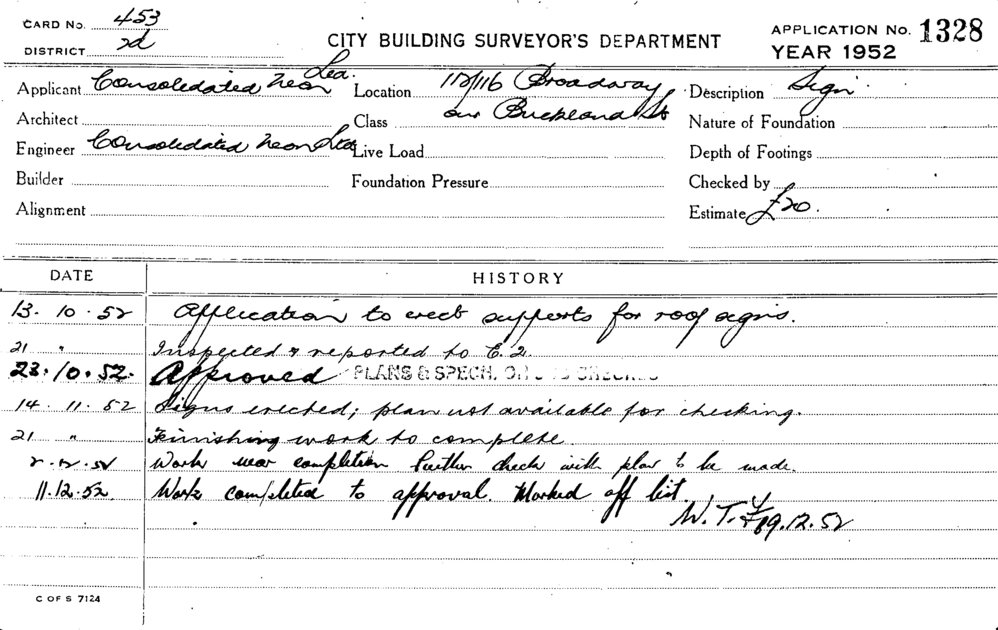 CARD No. 453
DISTRICT 2d
CITY BUILDING SURVEYOR'S DEPARTMENT
APPLICATION No. 1328
YEAR 1952
Applicant Consolidated Neon Ltd.
Location 112/116 Broadway
Description Sign
Architect
Class cnr Buckland St
Nature of Foundation
Engineer Consolidated Neon Ltd
Live Load
Depth of Footings
Builder
Foundation Pressure
Checked by
Alignment
Estimate £20.
DATE HISTORY
13.10.52 Application to erect supports for roof signs.
21 " Inspected & reported to E.2.
23.10.52. Approved PLANS & SPECN. CHECKED
14.11.52 Signs erected; plan not available for checking.
21 " Finishing work to complete.
2.12.52 Work near completion further check with plan to be made.
11.12.52. Work completed to approval. Marked off list
W.T. 19.12.52
C OF S 7124